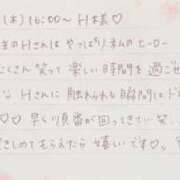 (木)16:00〜 H様♡
のHさんは やっぱり ネムのヒーロー
たくさん 笑って 楽しい時間を過ごせ
Hさんに 触れられる瞬間は
♡ 早く順番が回ってきてい 笑
きしめてもらえたら 嬉しいです♡。